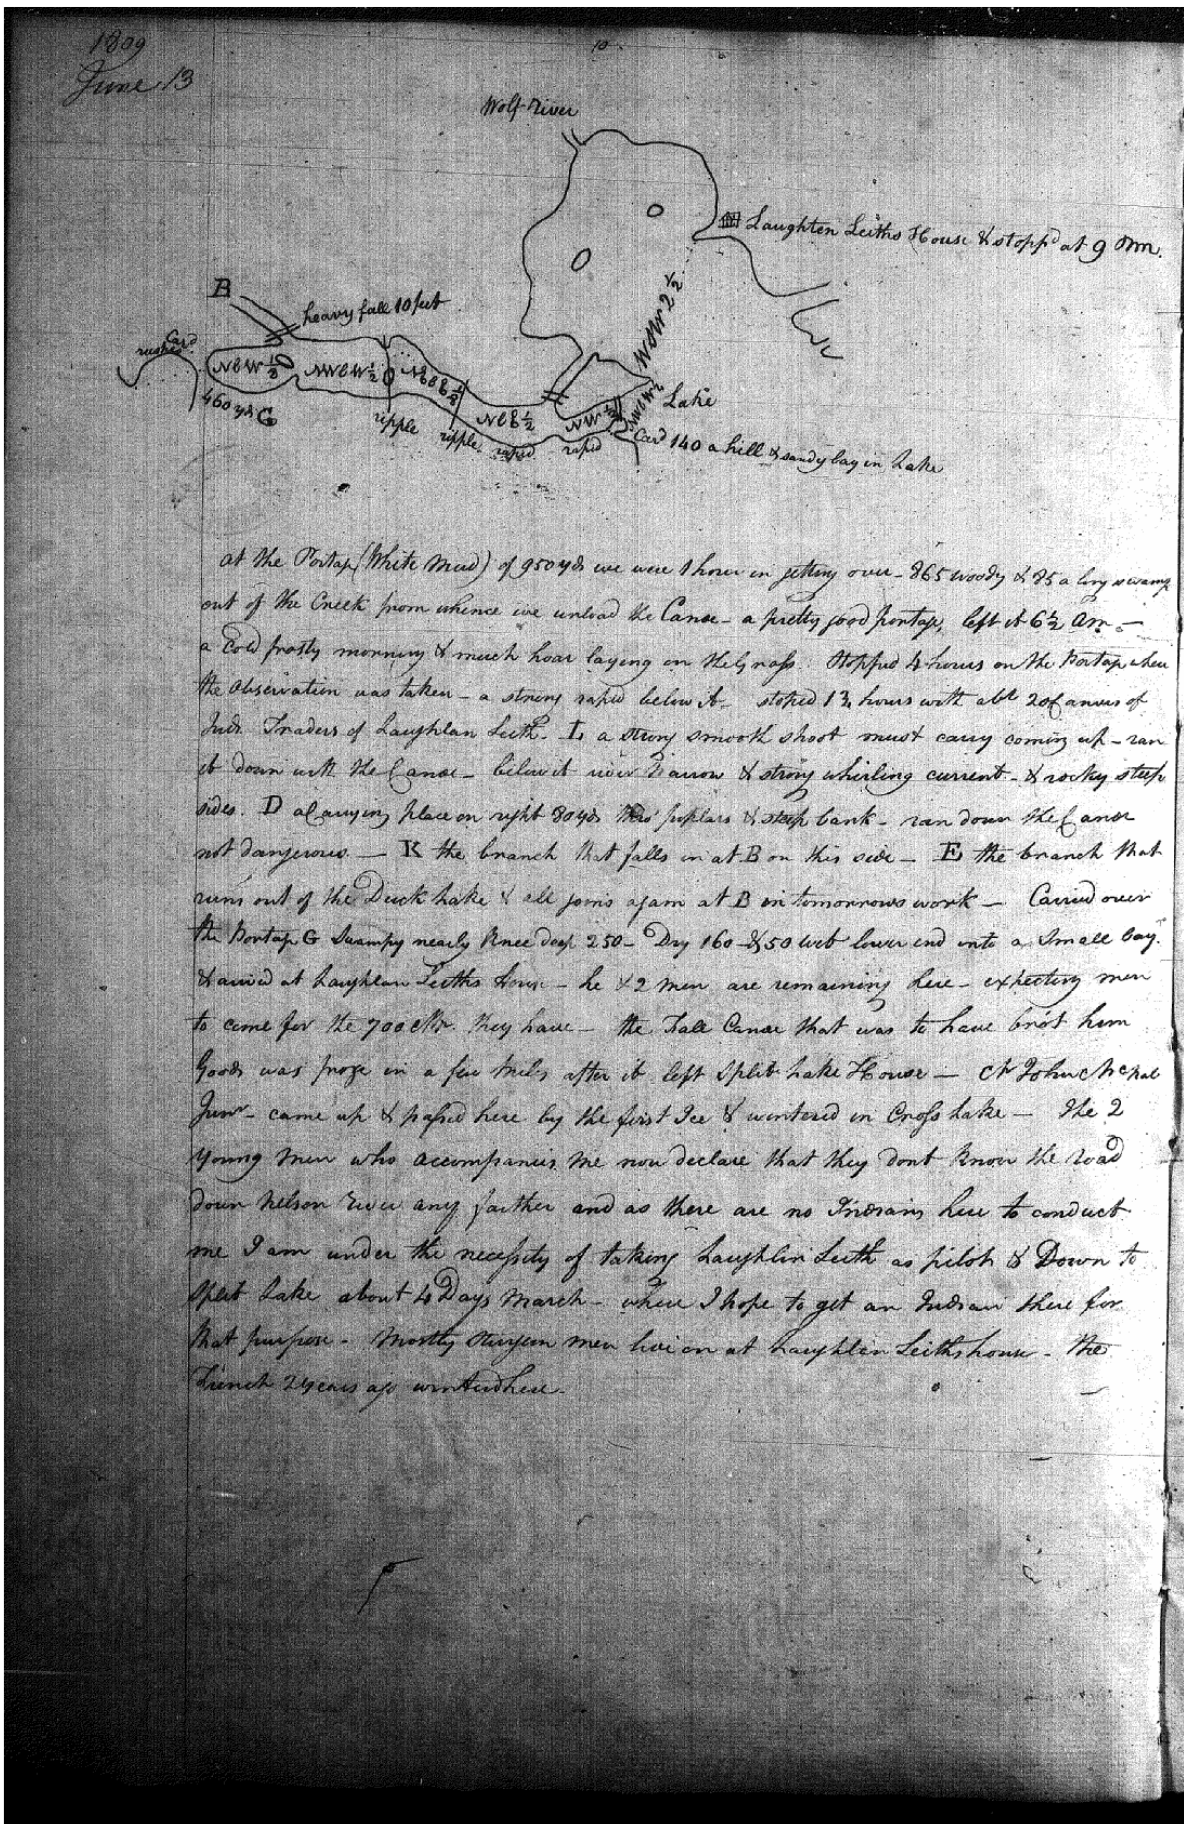 1809
10
June 13
Wolf River
Laughten Leiths House & stopp'd at 9 Pm.
B
heavy fall 10 feet
Car'd
rushes
NbW ½
NWbW ½
NbE ½
NW ½
WSW 2 ½
460 yds G
ripple
ripple
rapid
rapid
Lake
Card 140 a hill & sandy bay in Lake
at the Portage (White Mud) of 950 yds we were 1 hour in getting over - 865 woody & 85 a long swamp
out of the Creek from whence we unload the Canoe - a pretty good portage, left it 6½ Am -
a Cold frosty morning & much hoar laying on the Grass. Stopped 4 hours on the Portage when
the Observation was taken - a strong rapid below it - stoped 1¾ hours with abt 20 Canoes of
Inds. Traders of Laughlan Leith. L a strong smooth shoot must carry coming up - ran
it down with the Canoe - below it river Narrow & strong whirling current - & rocky steep
sides. D a Carrying place on right 80 yds thro' poplars & steep bank - ran down the Canoe
not dangerous - K the branch that falls in at B on this side - E the branch that
runs out of the Duck Lake & all joins again at B in tomorrows work - Carried over
the Portage G Swampy nearly Knee deep 250 - Dry 160 - & 50 wet lower end into a Small bay.
& arrived at Laughlan Leiths House - he & 2 men are remaining here - expecting men
to come for the 700 MBr. they have - the Fall Canoe that was to have bro't him
Goods was froze in a few miles after it left Split Lake House - Mr John McNab
Junr - came up & passed here by the first Ice & wintered in Cross Lake - The 2
Young men who accompanies me now declare that they dont Know the road
down Nelson River any farther and as there are no Indians here to conduct
me I am under the necessity of taking Laughlin Leith as pilot & Down to
Split Lake about 4 Days March - where I hope to get an Indian there for
that purpose - Mostly Sturgeon men live on at Laughlin Leiths house - the
French 2 years ago wintered here -